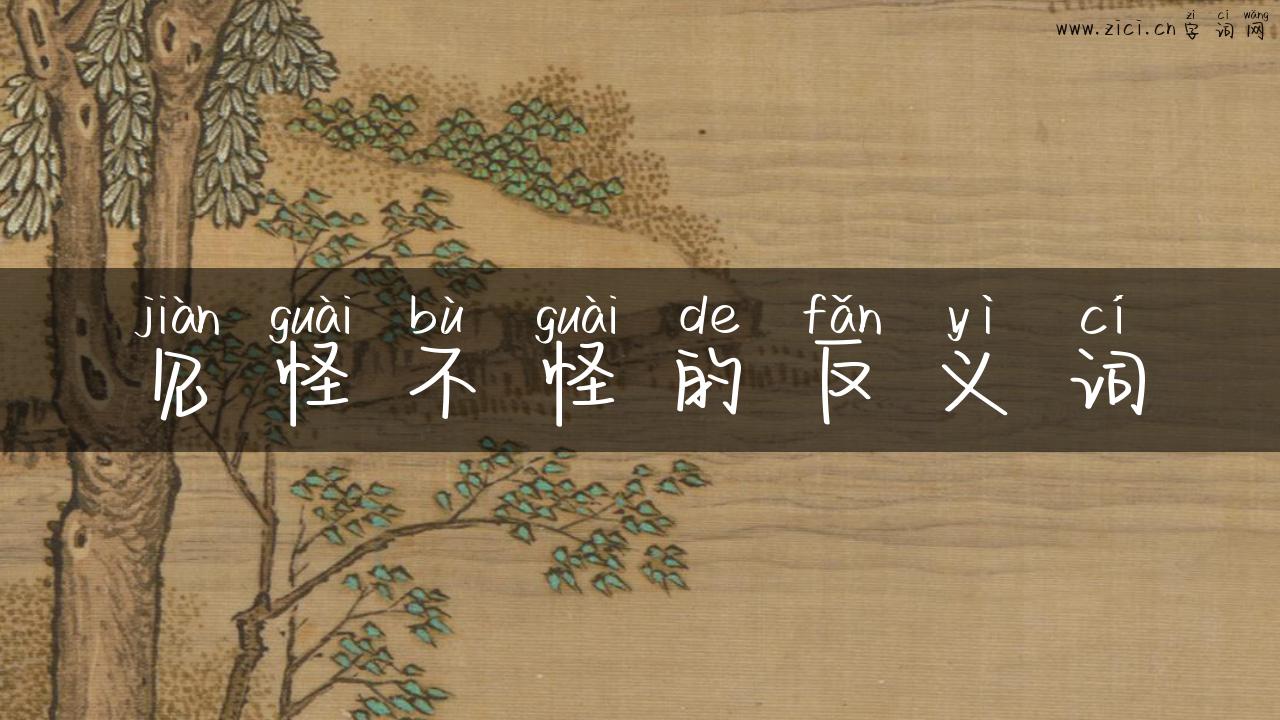 zì cí wǎng
www.zici.cn 字词网
jiàn guài bù guài de fǎn yì cí
见怪不怪的反义词